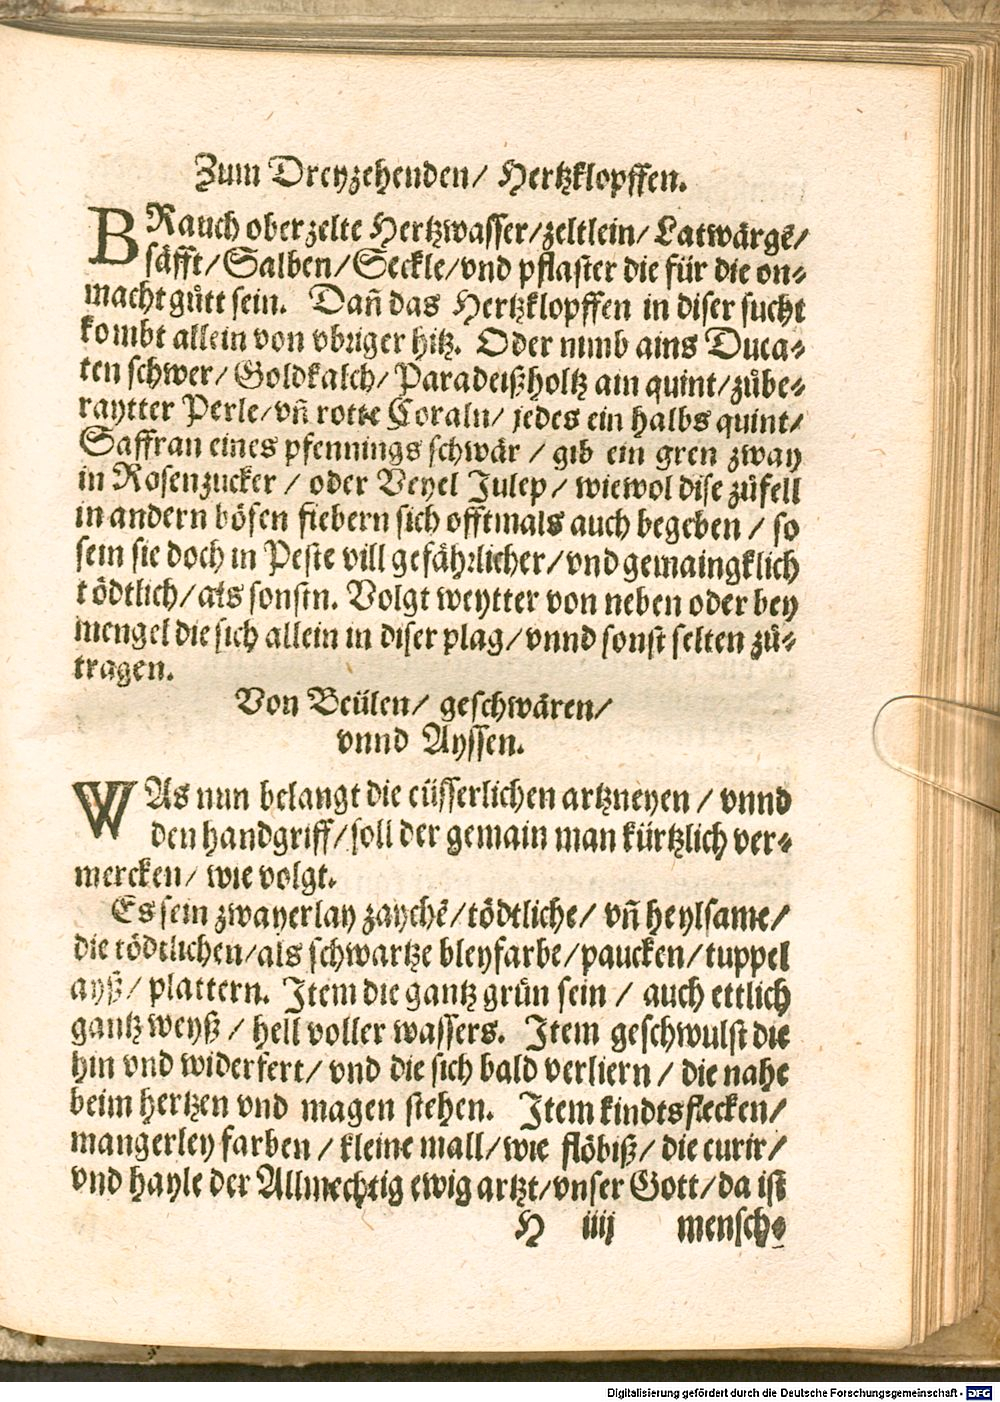 Zum Dreyzehenden/ Hertzklopffen.
BRauch oberzelte Hertzwasser/zeltlein/ Latwärge/
säfft/Salben/Seckle/vnd pflaster die für die on⸗
macht gůtt sein. Dañ das Hertzklopffen in diser sucht
kombt allein von vbriger hitz. Oder nimb ains Duca⸗
ten schwer/ Goldkalch/ Paradeißholtz ain quint/zůbe⸗
raytter Perle/vñ rotte Coraln/ jedes ein halbs quint/
Saffran eines pfennings schwär / gib ein gren zway
in Rosenzucker / oder Veyel Julep/ wiewol dise zůfell
in andern bösen fiebern sich offtmals auch begeben / so
sein sie doch in Peste vill gefährlicher/vnd gemaingklich
tödtlich/als sonstn. Volgt weytter von neben oder bey
mengel die sich allein in diser plag/vnnd sonst selten zů⸗
tragen.
Von Beülen/ geschwären/
vnnd Ayssen.
WAs nun belangt die eüsserlichen artzneyen / vnnd
den handgriff/soll der gemain man kürtzlich ver⸗
mercken/ wie volgt.
Es sein zwayerlay zaychē/tödtliche/ vñ heylsame/
die tödtlichen/als schwartze bleyfarbe/paucken/tuppel
ayß/ plattern. Item die gantz grün sein / auch ettlich
gantz weyß / hell voller wassers. Item geschwulst die
hin vnd widerfert/ vnd die sich bald verliern / die nahe
beim hertzen vnd magen stehen. Item kindtsflecken/
mangerley farben / kleine mall/wie flöbiß/ die curir/
vnd hayle der Allmechtig ewig artzt/vnser Gott/da ist
H iiij mensch⸗
Digitalisierung gefördert durch die Deutsche Forschungsgemeinschaft - DFG